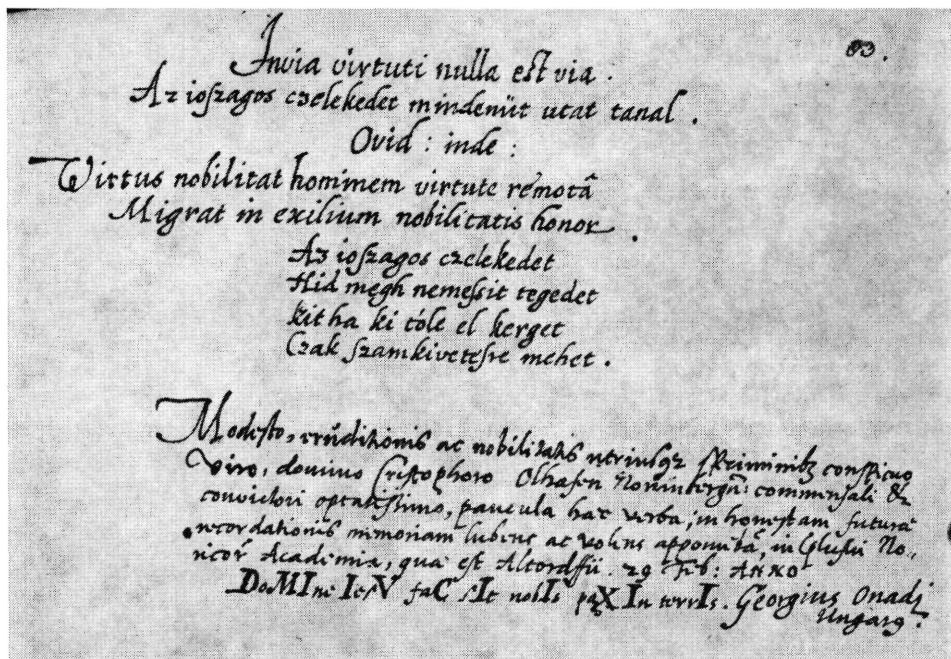 83.
Invia virtuti nulla est via.
Az ioszagos czelekedet mindenüt utat tanal.
Ovid: inde:
Virtus nobilitat hominem virtute remotâ
Migrat in exilium nobilitatis honor.
Az ioszagos czelekedet
Hid megh nemessit tegedet
kit ha ki töle el kerget
Czak szamkivetesre mehet.
Modesto, eruditionis ac nobilitatis utriusqz conspicuo
viro, domino Cristophoro Olhafen commensali &
convictori optatissimo, paucula haec verba, in honestam futurae
recordationis memoriam lubens ac volens in No-
Academia, quae est Altorffii. 29 Feb: ANNO
DoMIne IesV faC sIt nobIs paX In terrIs. Georgius Onadi
Ungarq.